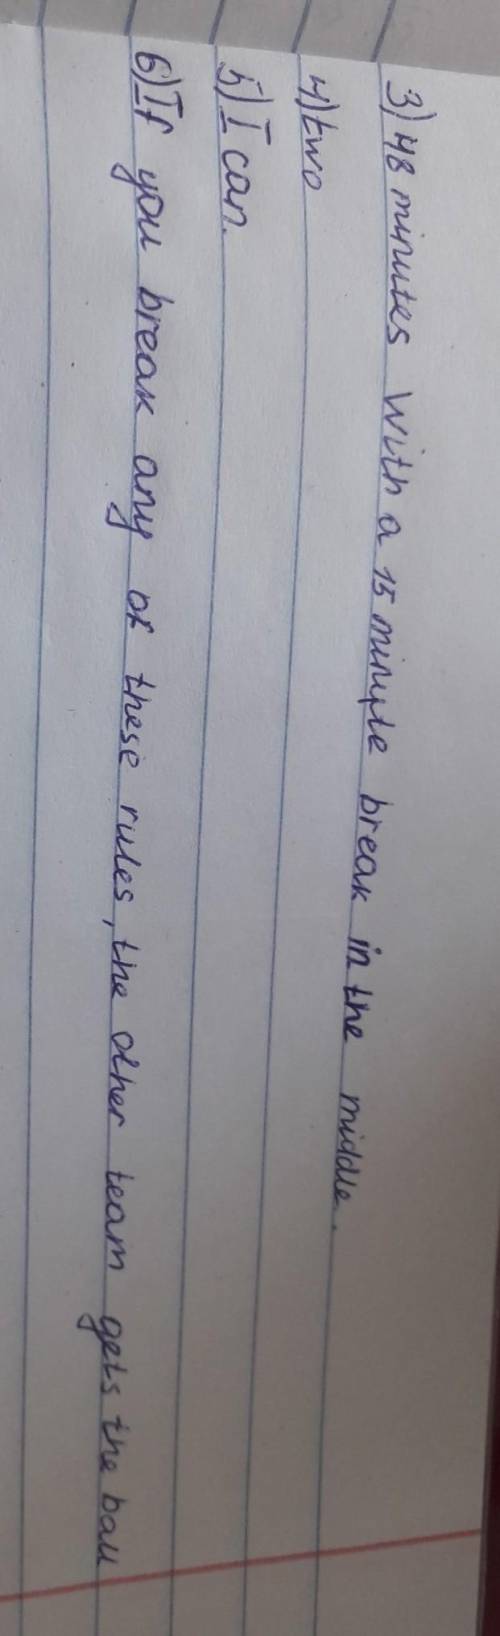 3) 48 minutes with a 15 minute break in the middle.
4) two
5) I can.
6) If you break any of these rules, the other team gets the ball